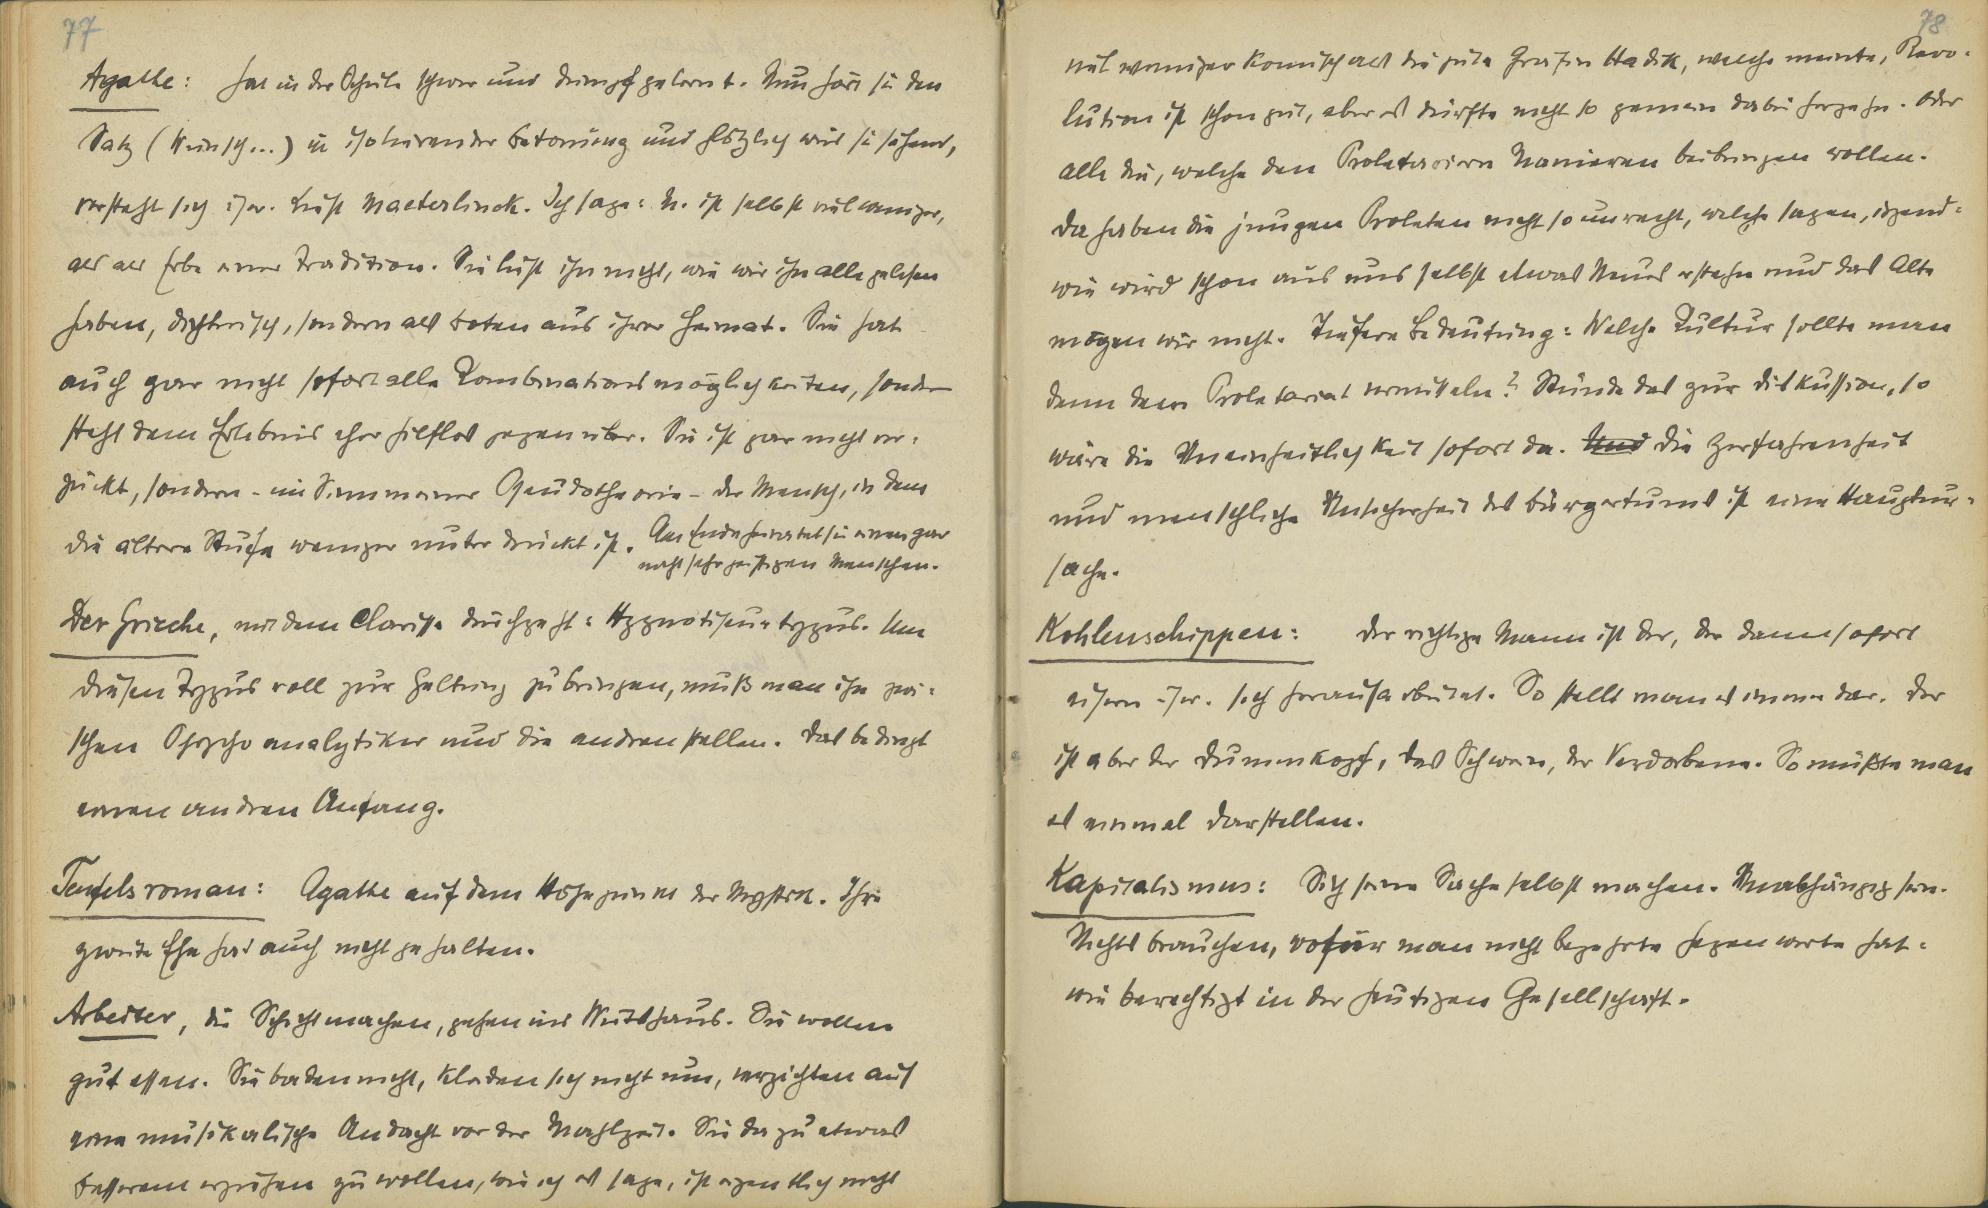 77
Agathe: hat in der Schule schwer und dumpf gelernt. Nun hört sie den
Satz (Mensch...) in isolierender Betonung und plötzlich wird sie sehend,
versteht sich usw. Liest Maeterlinck. Ich sage: M. ist selbst viel weniger,
als der Erbe einer Tradition. Sie liest ihn nicht, wie wir ihn alle gelesen
haben, dichterisch, sondern als Boten aus ihrer Heimat. Sie hat
auch gar nicht sofort alle Kombinationsmöglichkeiten, sondern
steht dem Erlebnis eher hilflos gegenüber. Sie ist gar nicht ver-
zückt, sondern – im Sinn meiner Pseudotheorie – der Mensch, in dem
die ältere Stufe weniger unterdrückt ist. Am Ende heiratet sie einen gar
nicht sehr geistigen Menschen.
Der Grieche, mit dem Clarisse durchgeht: Hypnotiseurtypus. Um
diesen Typus voll zur Geltung zu bringen, muß man ihn zwi-
schen Psychoanalytiker und die andren stellen. Das bedingt
einen andren Anfang.
Teufelsroman: Agathe auf dem Höhepunkt der Mystik. Ihre
zweite Ehe hat auch nicht gehalten.
Arbeiter, die Schicht machen, gehen ins Wirtshaus. Sie wollen
gut essen. Sie baden nicht, kleiden sich nicht um, verzichten auf
eine musikalische Andacht vor der Mahlzeit. Sie dazu etwas
Besserem erziehen zu wollen, wie ich es sage, ist eigentlich nicht
78
viel weniger komisch als die gute Gräfin Hadik, welche meinte, Revo-
lution ist schon gut, aber es dürfte nicht so gemein dabei hergehn. Oder
alle die, welche den Proletariern Manieren beibringen wollen.
Da haben die jungen Proleten nicht so unrecht, welche sagen, irgend-
wie wird schon aus uns selbst etwas Neues erstehn und das Alte
mögen wir nicht. Tiefere Bedeutung: Welche Kultur sollte man
denn dem Proletariat vermitteln? Stünde das zur Diskussion, so
wäre die Uneinheitlichkeit sofort da. Und die Zerfahrenheit
und menschliche Unsicherheit des Bürgertums ist eine Hauptur-
sache.
Kohlenschippen: Der richtige Mann ist der, der dann sofort
eisern usw. sich herausarbeitet. So stellt man es immer dar. Der
ist aber der Dummkopf, das Schwein, der Verdorbene. So müßte man
es einmal darstellen.
Kapitalismus: Sich seine Sache selbst machen. Unabhängig sein.
Nichts brauchen, wofür man nicht begehrte Gegenwerte hat:
wie berechtigt in der heutigen Gesellschaft.